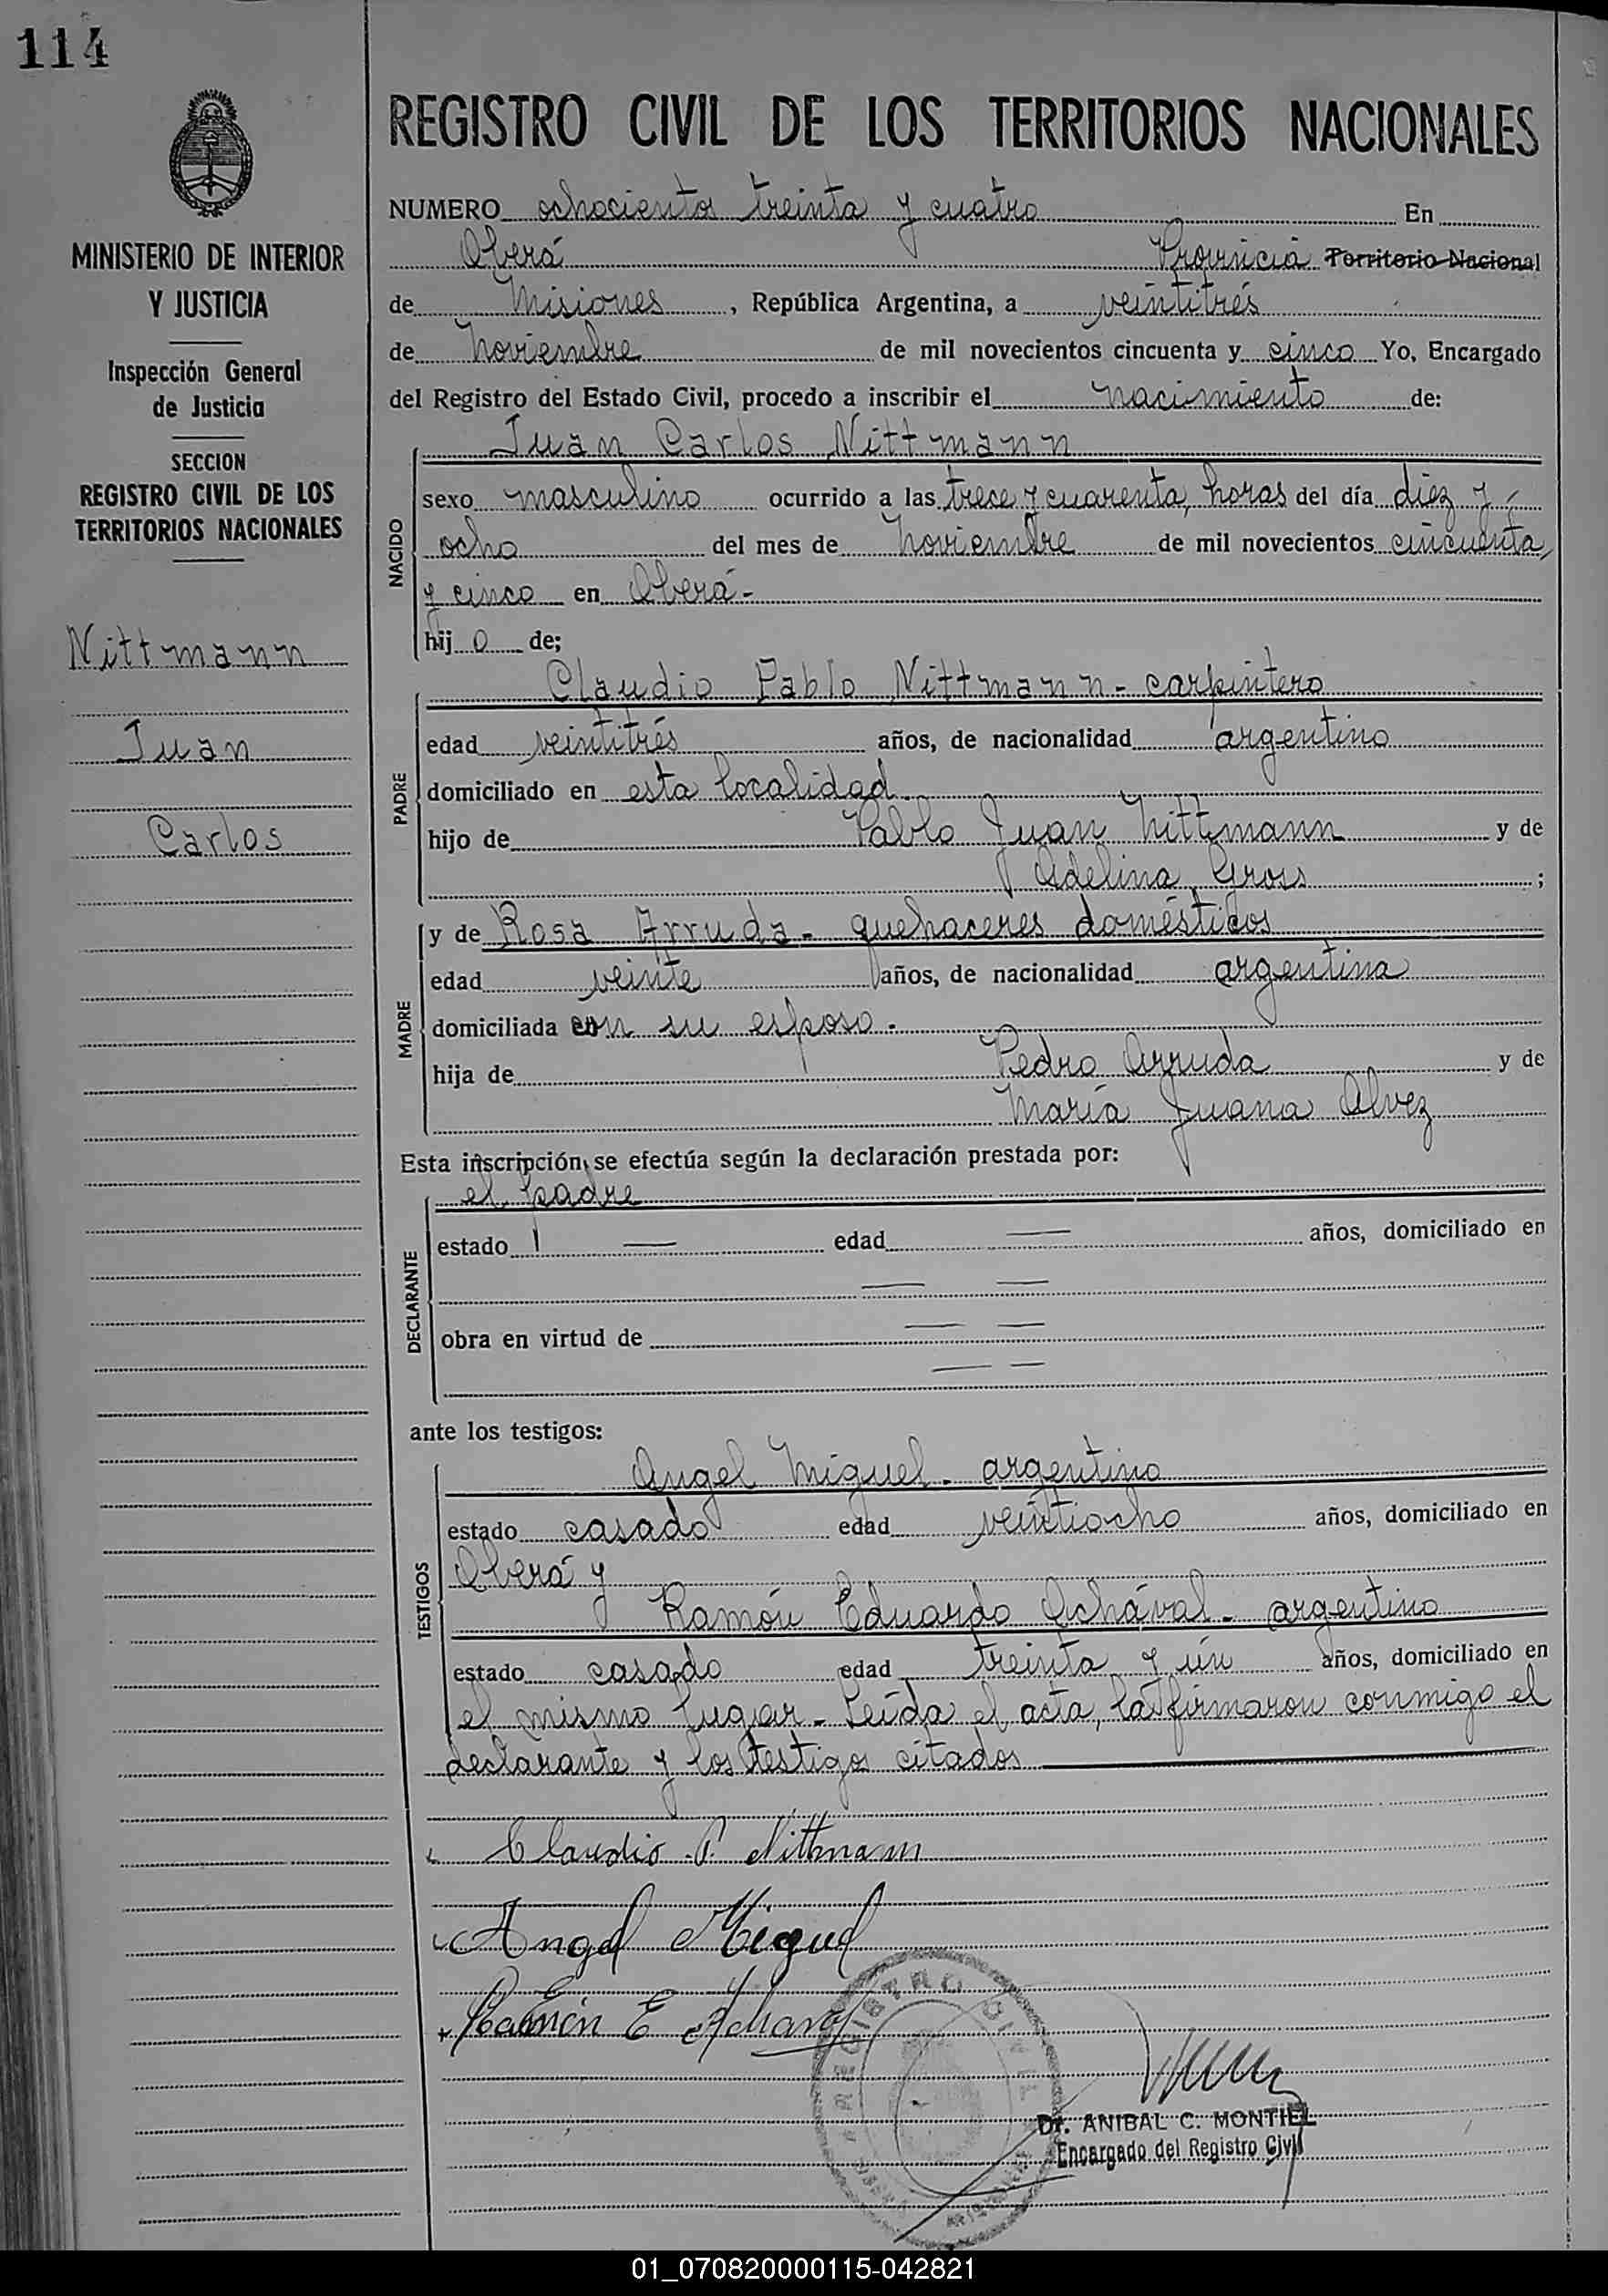 114
REGISTRO CIVIL DE LOS TERRITORIOS NACIONALES
MINISTERIO DE INTERIOR
Y JUSTICIA
Inspección General
de Justicia
SECCION
REGISTRO CIVIL DE LOS
TERRITORIOS NACIONALES
Nittmann
Juan
Carlos
NUMERO ochocientos treinta y cuatro En
Oberá Provincia Territorio Nacional
de Misiones, República Argentina, a veintitrés
de Noviembre de mil novecientos cincuenta y cinco Yo, Encargado
del Registro del Estado Civil, procedo a inscribir el nacimiento de:
NACIDO
Juan Carlos Nittmann
sexo masculino ocurrido a las trece y cuarenta, horas del día diez y
ocho del mes de Noviembre de mil novecientos cincuenta
y cinco en Oberá-
hijo de;
PADRE
Claudio Pablo Nittmann - carpintero
edad veintitrés años, de nacionalidad argentino
domiciliado en esta localidad.
hijo de Pablo Juan Nittmann y de
Adelina Gross;
MADRE
y de Rosa Arruda - quehaceres domésticos
edad veinte años, de nacionalidad argentina
domiciliada con su esposo.
hija de Pedro Arruda y de
María Juana Alvez
Esta inscripción, se efectúa según la declaración prestada por:
DECLARANTE
el padre
estado — edad — años, domiciliado en
— —
obra en virtud de — —
— —
ante los testigos:
TESTIGOS
Angel Miguel - argentino
estado casado edad veintiocho años, domiciliado en
Oberá y
Ramón Eduardo Achával - argentino
estado casado edad treinta y ún años, domiciliado en
el mismo lugar - Leída el acta, la firmaron conmigo el
declarante y los testigos citados
Claudio P. Nittmann
Angel Miguel
Ramón E Achaval
REGISTRO CIVIL
Dr. ANIBAL C. MONTIEL
Encargado del Registro Civil
01_070820000115-042821